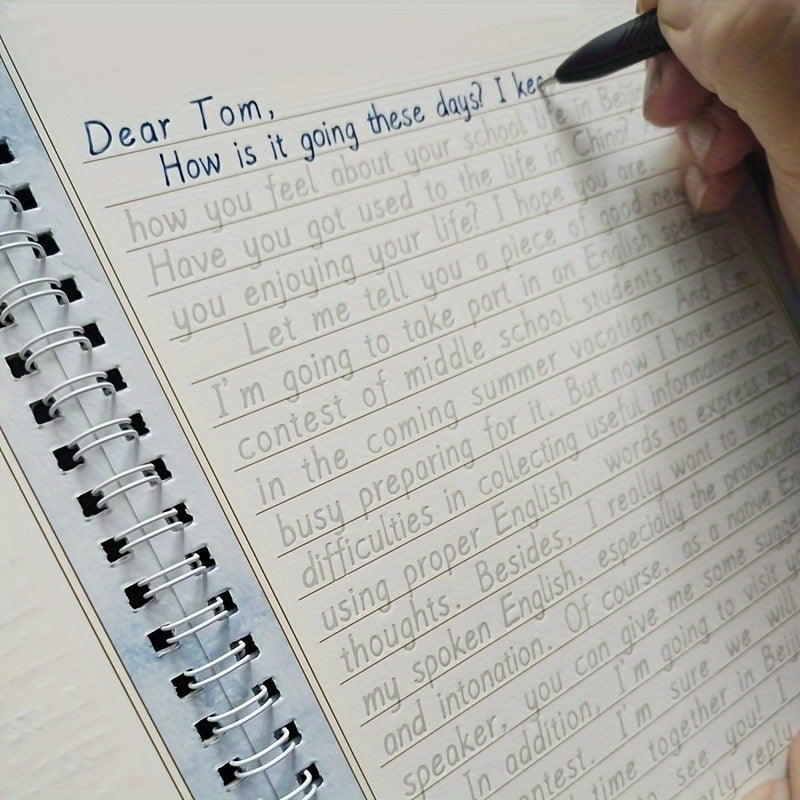 Dear Tom,
How is it going these days? I kee
how you feel about your school life in Beijin
Have you got used to the life in China?
you enjoying your life? I hope you are
Let me tell you a piece of good new
I'm going to take part in an English spee
contest of middle school students in July
in the coming summer vacation. And I'm
busy preparing for it. But now I have some
difficulties in collecting useful information and
using proper English words to express my
thoughts. Besides, I really want to improv
my spoken English, especially the pronunciati
and intonation. Of course, as a native En
speaker, you can give me some sugge
In addition, I'm going to visit y
ontest. I'm sure we will
time together in Beiji
to see you! I
arly reply